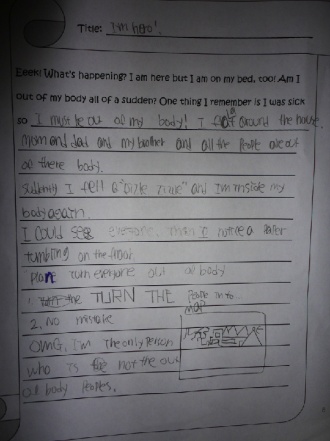 Title: I'm hero!
Eeek! What's happening? I am here but I am on my bed, too! Am I
out of my body all of a sudden? One thing I remember is I was sick
so I must be out of my body! I float around the house.
Mom and dad and my brother and all the People are out
of there body.
Suddenly I fell a and I'm inside my
body again.
I could see everyone. Then I notice a Paper
tumbling on the floor.
Plan turn everyone out of body
1. the TURN THE People in to
MAP
2. No mistake
OMG, I'm the only Person
who is not the out
of body Peoples.